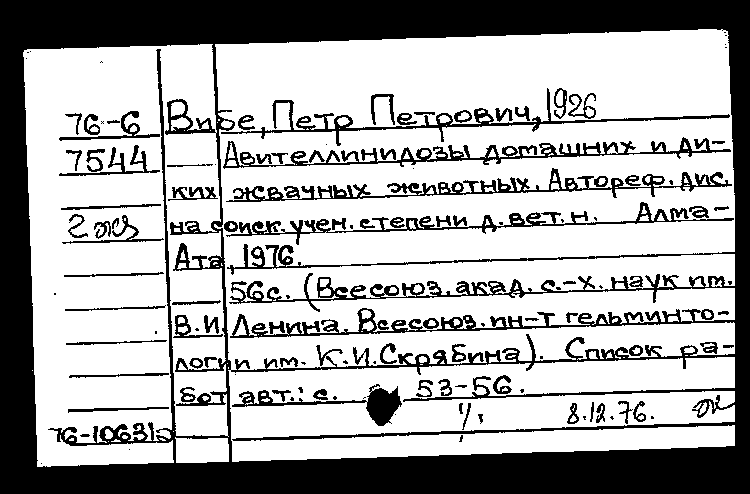 76-6 Вибе, Петр Петрович, 1926
7544 Авителлинидозы домашних и ди-
ких жвачных животных. Автореф. дис.
2 экз на соиск. учен. степени д. вет. н. Алма-
Ата, 1976.
56с. (Всесоюз. акад. с.-х. наук им.
В.И. Ленина. Всесоюз. ин-т гельминто-
логии им. К.И. Скрябина). Список ра-
бот авт.: с. 53-56.
8.12.76.
76-10631